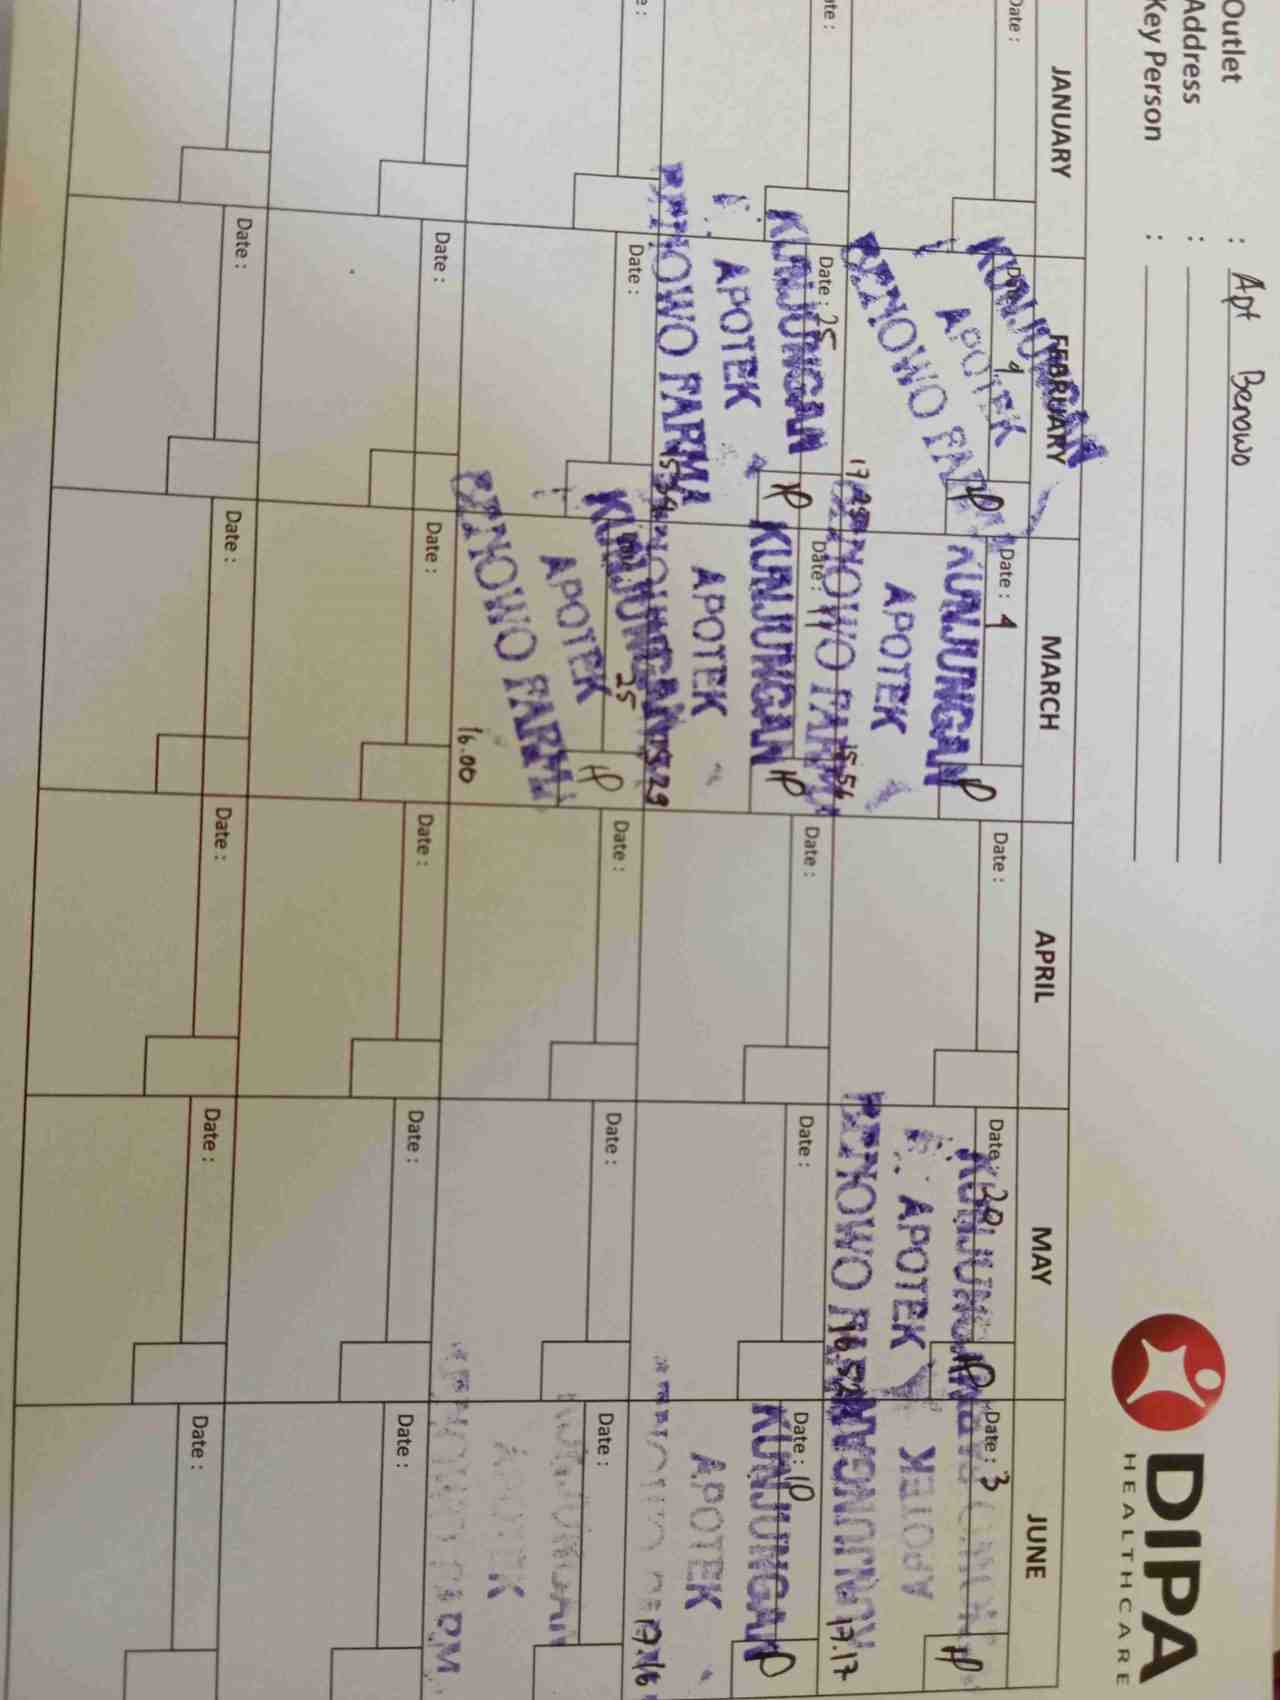 DIPA
HEALTHCARE
Outlet : Apt Benowo
Address :
Key Person :
JANUARY FEBRUARY MARCH APRIL MAY JUNE
Date : Date : 9 Date : 4 Date : Date : 20 Date : 3
KUNJUNGAN KUNJUNGAN KUNJUNGAN KUNJUNGAN
APOTEK APOTEK APOTEK APOTEK
BENOWO FARMA BENOWO FARMA BENOWO FARMA
17.25 15.54 16.52 17.17
Date : Date : 25 Date : 11 Date : Date : Date : 10
KUNJUNGAN KUNJUNGAN KUNJUNGAN
APOTEK APOTEK APOTEK
BENOWO FARMA BENOWO
15.29 17.16
Date : Date : 25 Date : Date : Date :
KUNJUNGAN KUNJUNGAN
APOTEK APOTEK
BENOWO FARMA
16.00
Date : Date : Date : Date : Date :
Date : Date : Date : Date : Date :